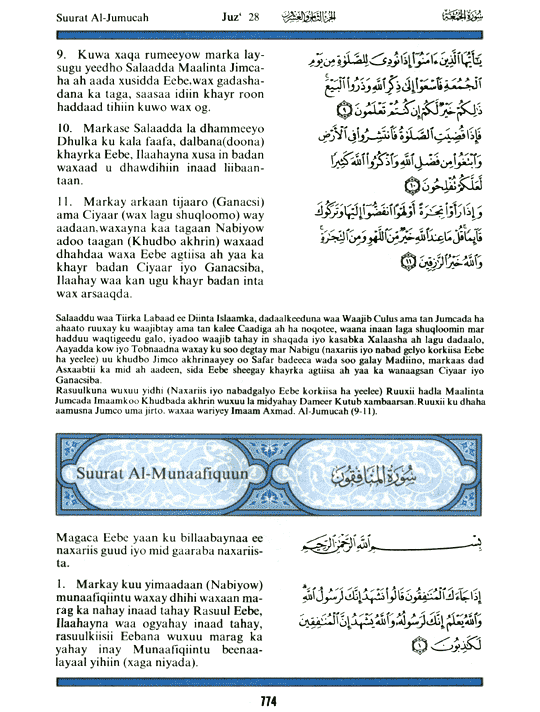 Suurat Al-Jumucah Juz' 28 الجزء الثامن والعشرون سورة الجمعة
9. Kuwa xaqa rumeeyow marka lay-
sugu yeedho Salaadda Maalinta Jimca-
ha ah aada xusidda Eebe.wax gadasha-
dana ka taga, saasaa idiin khayr roon
haddaad tihiin kuwo wax og.
10. Markase Salaadda la dhammeeyo
Dhulka ku kala faafa, dalbana(doona)
khayrka Eebe, Ilaahayna xusa in badan
waxaad u dhawdihiin inaad liibaan-
taan.
11. Markay arkaan tijaaro (Ganacsi)
ama Ciyaar (wax lagu shuqloomo) way
aadaan.waxayna kaa tagaan Nabiyow
adoo taagan (Khudbo akhrin) waxaad
dhahdaa waxa Eebe agtiisa ah yaa ka
khayr badan Ciyaar iyo Ganacsiba,
Ilaahay waa kan ugu khayr badan inta
wax arsaaqda.
يَٰٓأَيُّهَا ٱلَّذِينَ ءَامَنُوٓا۟ إِذَا نُودِىَ لِلصَّلَوٰةِ مِن يَوْمِ
ٱلْجُمُعَةِ فَٱسْعَوْا۟ إِلَىٰ ذِكْرِ ٱللَّهِ وَذَرُوا۟ ٱلْبَيْعَ
ذَٰلِكُمْ خَيْرٌ لَّكُمْ إِن كُنتُمْ تَعْلَمُونَ ٩
فَإِذَا قُضِيَتِ ٱلصَّلَوٰةُ فَٱنتَشِرُوا۟ فِى ٱلْأَرْضِ
وَٱبْتَغُوا۟ مِن فَضْلِ ٱللَّهِ وَٱذْكُرُوا۟ ٱللَّهَ كَثِيرًا
لَّعَلَّكُمْ تُفْلِحُونَ ١٠
وَإِذَا رَأَوْا۟ تِجَٰرَةً أَوْ لَهْوًا ٱنفَضُّوٓا۟ إِلَيْهَا وَتَرَكُوكَ
قَآئِمًا قُلْ مَا عِندَ ٱللَّهِ خَيْرٌ مِّنَ ٱللَّهْوِ وَمِنَ ٱلتِّجَٰرَةِ
وَٱللَّهُ خَيْرُ ٱلرَّٰزِقِينَ ١١
Salaaddu waa Tiirka Labaad ee Diinta Islaamka, dadaalkeeduna waa Waajib Culus ama tan Jumcada ha
ahaato ruuxay ku waajibtay ama tan kalee Caadiga ah ha noqotee, waana inaan laga shuqloomin mar
hadduu waqtigeedu galo, iyadoo waajib tahay in shaqada iyo kasabka Xalaasha ah lagu dadaalo,
Aayadda kow iyo Tobnaadna waxay ku soo degtay mar Nabigu (naxariis iyo nabad gelyo korkiisa Eebe
ha yeelee) uu khudbo Jimco akhrinaayey oo Safar badeeca wada soo galay Madiino, markaas dad
Asxaabtii ka mid ah aadeen, sida Eebe sheegay khayrka agtiisa ah yaa ka wanaagsan Ciyaar iyo
Ganacsiba.
Rasuulkuna wuxuu yidhi (Naxariis iyo nabadgalyo Eebe korkiisa ha yeelee) Ruuxii hadla Maalinta
Jumcada Imaamkoo Khudbada akhrin wuxuu la midyahay Dameer Kutub xambaarsan.Ruuxii ku dhaha
aamusna Jumco uma jirto. waxaa wariyey Imaam Axmad. Al-Jumucah (9-11).
Suurat Al-Munaafiquun سورة المنافقون
Magaca Eebe yaan ku billaabaynaa ee
naxariis guud iyo mid gaaraba naxariis-
ta.
بِسْمِ ٱللَّهِ ٱلرَّحْمَٰنِ ٱلرَّحِيمِ
1. Markay kuu yimaadaan (Nabiyow)
munaafiqiintu waxay dhihi waxaan ma-
rag ka nahay inaad tahay Rasuul Eebe,
Ilaahayna waa ogyahay inaad tahay,
rasuulkiisii Eebana wuxuu marag ka
yahay inay Munaafiqiintu beenaa-
layaal yihiin (xaga niyada).
إِذَا جَآءَكَ ٱلْمُنَٰفِقُونَ قَالُوا۟ نَشْهَدُ إِنَّكَ لَرَسُولُ ٱللَّهِ
وَٱللَّهُ يَعْلَمُ إِنَّكَ لَرَسُولُهُۥ وَٱللَّهُ يَشْهَدُ إِنَّ ٱلْمُنَٰفِقِينَ
لَكَٰذِبُونَ ١
774